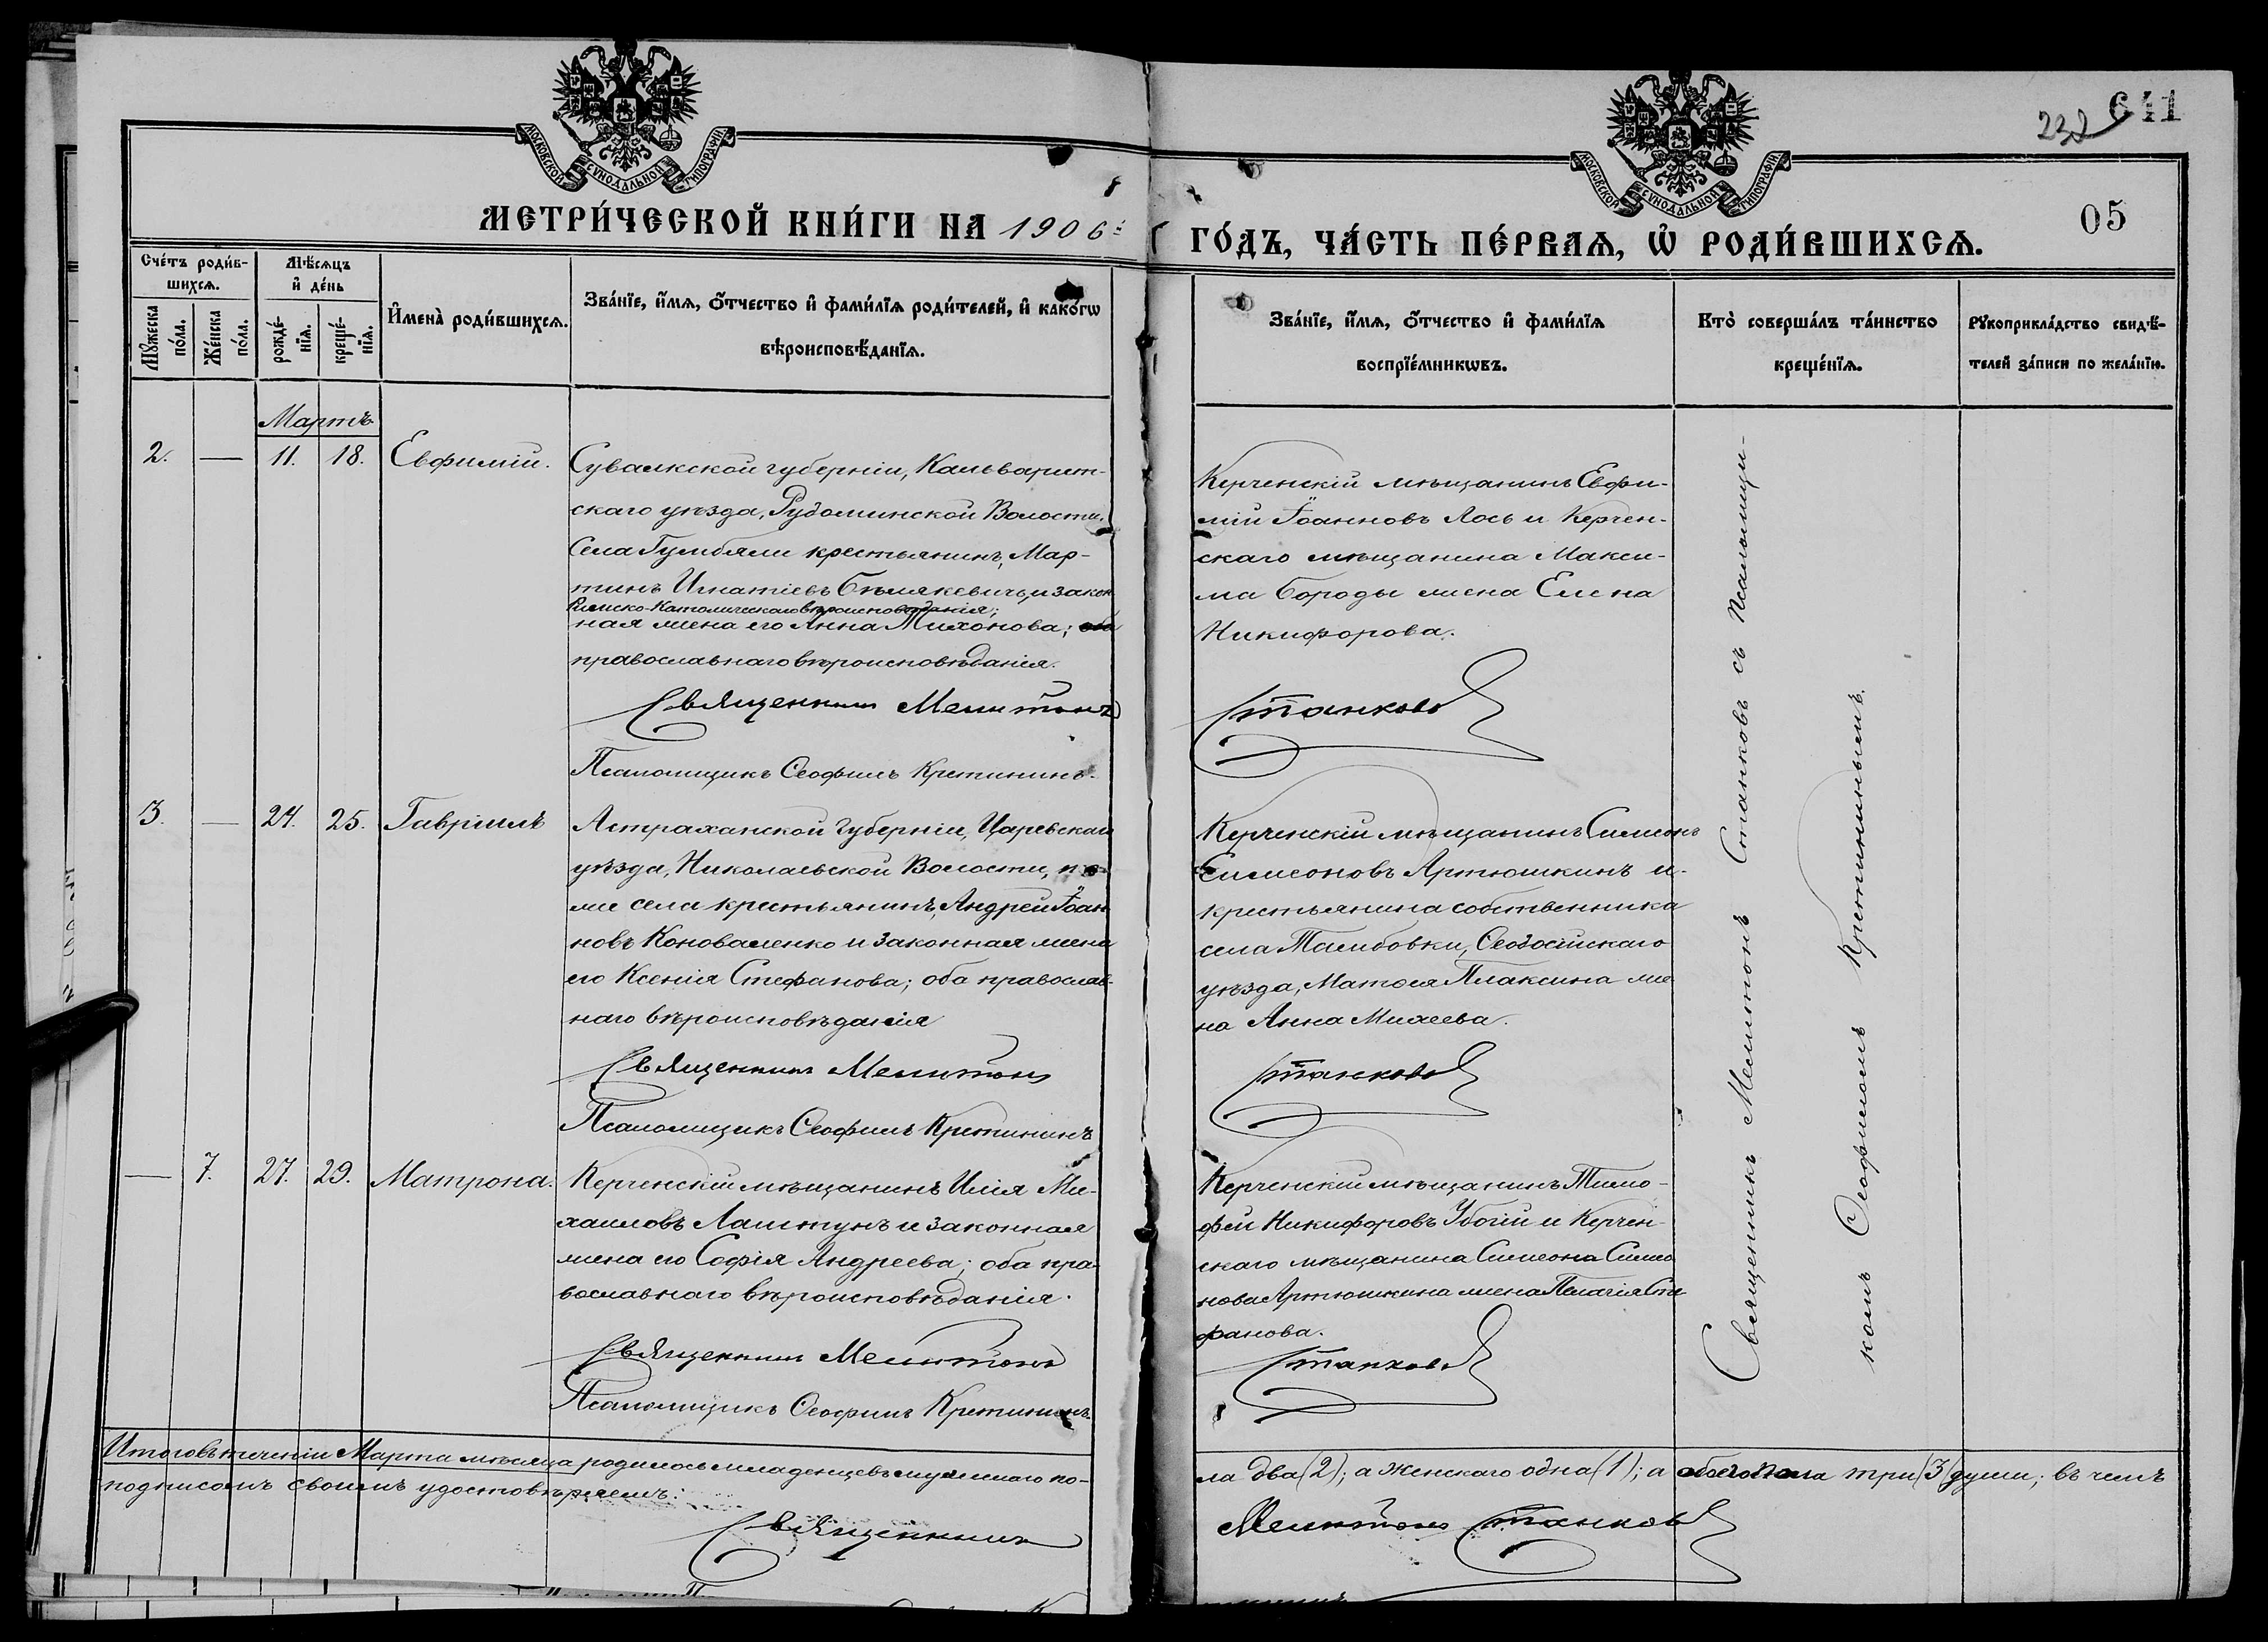 641
232
05
МОСКОВСКОЙ СѴНОДАЛЬНОЙ ТИПОГРАФІИ
МОСКОВСКОЙ СѴНОДАЛЬНОЙ ТИПОГРАФІИ
МЕТРИ́ЧЕСКОЙ КНИ́ГИ НА 1906й ГО́ДЪ, ЧА́СТЬ ПЕ́РВАѦ, Ѡ҆ РОДИ́ВШИХСѦ.
Сче́тъ роди́в-
шихсѧ.
Мѣ́сѧцъ
и҆ де́нь
Мꙋ́жеска по́ла.
Же́нска по́ла.
рожде́-нїѧ.
креще́-нїѧ.
И҆мена̀ роди́вшихсѧ.
Зва́нїе, и҆́мѧ, ѻ҆́тчество и҆ фами́лїѧ роди́телей, и҆ како́гѡ
вѣроисповѣ́данїѧ.
Зва́нїе, и҆́мѧ, ѻ҆́тчество и҆ фами́лїѧ
воспрїе́мникѡвъ.
Кто̀ соверша́лъ та́инство
креще́нїѧ.
Рꙋкоприкла́дство свидѣ́-
телей за́писи по жела́нїю.
Мартъ
2. — 11. 18. Евфимій.
Сувалкской губерніи, Кальварій-
скаго уѣзда, Рудоминской Волости,
Села Гумбяли крестьянинъ, Мар-
тинъ Игнатіевъ Бѣлякевичъ, и закон
Римско-Католическаго вѣроисповѣданія;
ная жена его Анна Тихонова;
православнаго вѣроисповѣданія.
Священникъ Мелитонъ
Псаломщикъ Ѳеофилъ Кретининъ.
Керченскій мѣщанинъ Евфи-
мій Іоанновъ Лось и Керчен-
скаго мѣщанина Макси-
ма Бороды жена Елена
Никифорова.
Станковъ
3. — 24. 25. Гавріилъ
Астраханской Губерніи, Царевскаго
уѣзда, Николаевской Волости,
села крестьянинъ, Андрей Іоан
новъ Коноваленко и законная жена
его Ксенія Стефанова; оба православ-
наго вѣроисповѣданія
Священникъ Мелитонъ
Псаломщикъ Ѳеофилъ Кретининъ
Керченскій мѣщанинъ Симеонъ
Симеоновъ Артюшкинъ и
крестьянина собственника
села Ѳеодосійскаго
уѣзда, Плаксина же
на Анна Михеева.
Станковъ
— 7. 27. 29. Матрона.
Керченскій мѣщанинъ Илія Ми-
хаиловъ Лаштунъ и законная
жена его Софія Андреева; оба пра-
вославнаго вѣроисповѣданія.
Священникъ Мелитонъ
Псаломщикъ Ѳеофилъ Кретининъ
Керченскій мѣщанинъ Тимо-
фей Никифоровъ Убогій и Керчен-
скаго мѣщанина Симеона Симео
нова Артюшкина жена Пелагія Сте
фанова.
Станковъ
Священникъ Мелитонъ Станковъ съ Псаломщи-
комъ Ѳеофиломъ Кретининымъ.
Итого въ теченіи Марта мѣсяца родилось младенцевъ мужескаго по-
ла два (2); а женскаго одна (1); а обоего пола три (3) души; въ чемъ
подписомъ своимъ удостовѣряемъ:
Священникъ Мелитонъ Станковъ